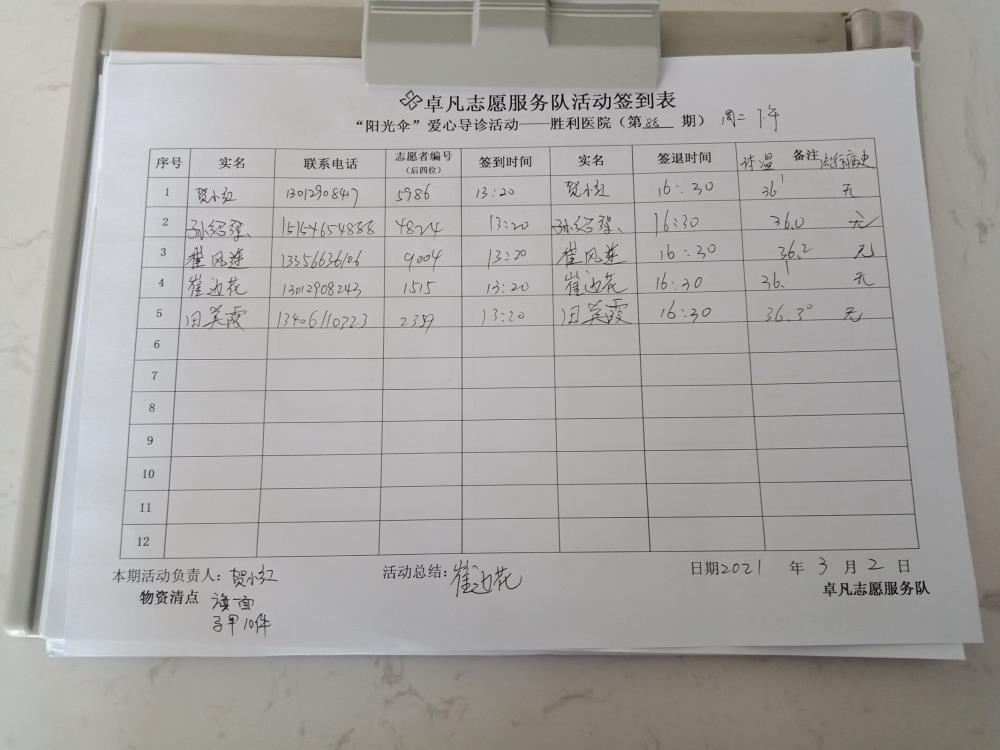 卓凡志愿服务队活动签到表
“阳光伞”爱心导诊活动——胜利医院（第 88 期） 周二 下午
序号 实名 联系电话 志愿者编号（后四位） 签到时间 实名 签退时间 体温 备注 流行病史
1 贺小红 1301290847 5986 13:20 贺小红 16:30 36.1 无
2 15154654888 4824 13:20 16:30 36.0 无
3 崔风莲 13356636106 9004 13:20 崔风莲 16:30 36.2 无
4 崔迎花 13012908243 1515 13:20 崔迎花 16:30 36.1 无
5 田英霞 13406110323 2359 13:20 田英霞 16:30 36.3° 无
6
7
8
9
10
11
12
本期活动负责人：贺小红 活动总结：崔迎花 日期2021 年 3 月 2 日
物资清点 旗一面 卓凡志愿服务队
马甲10件